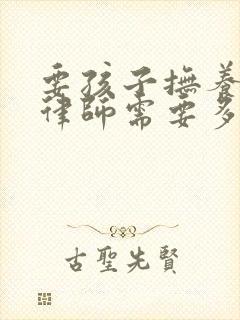 要孩子撫養
律師需要多
古聖先賢